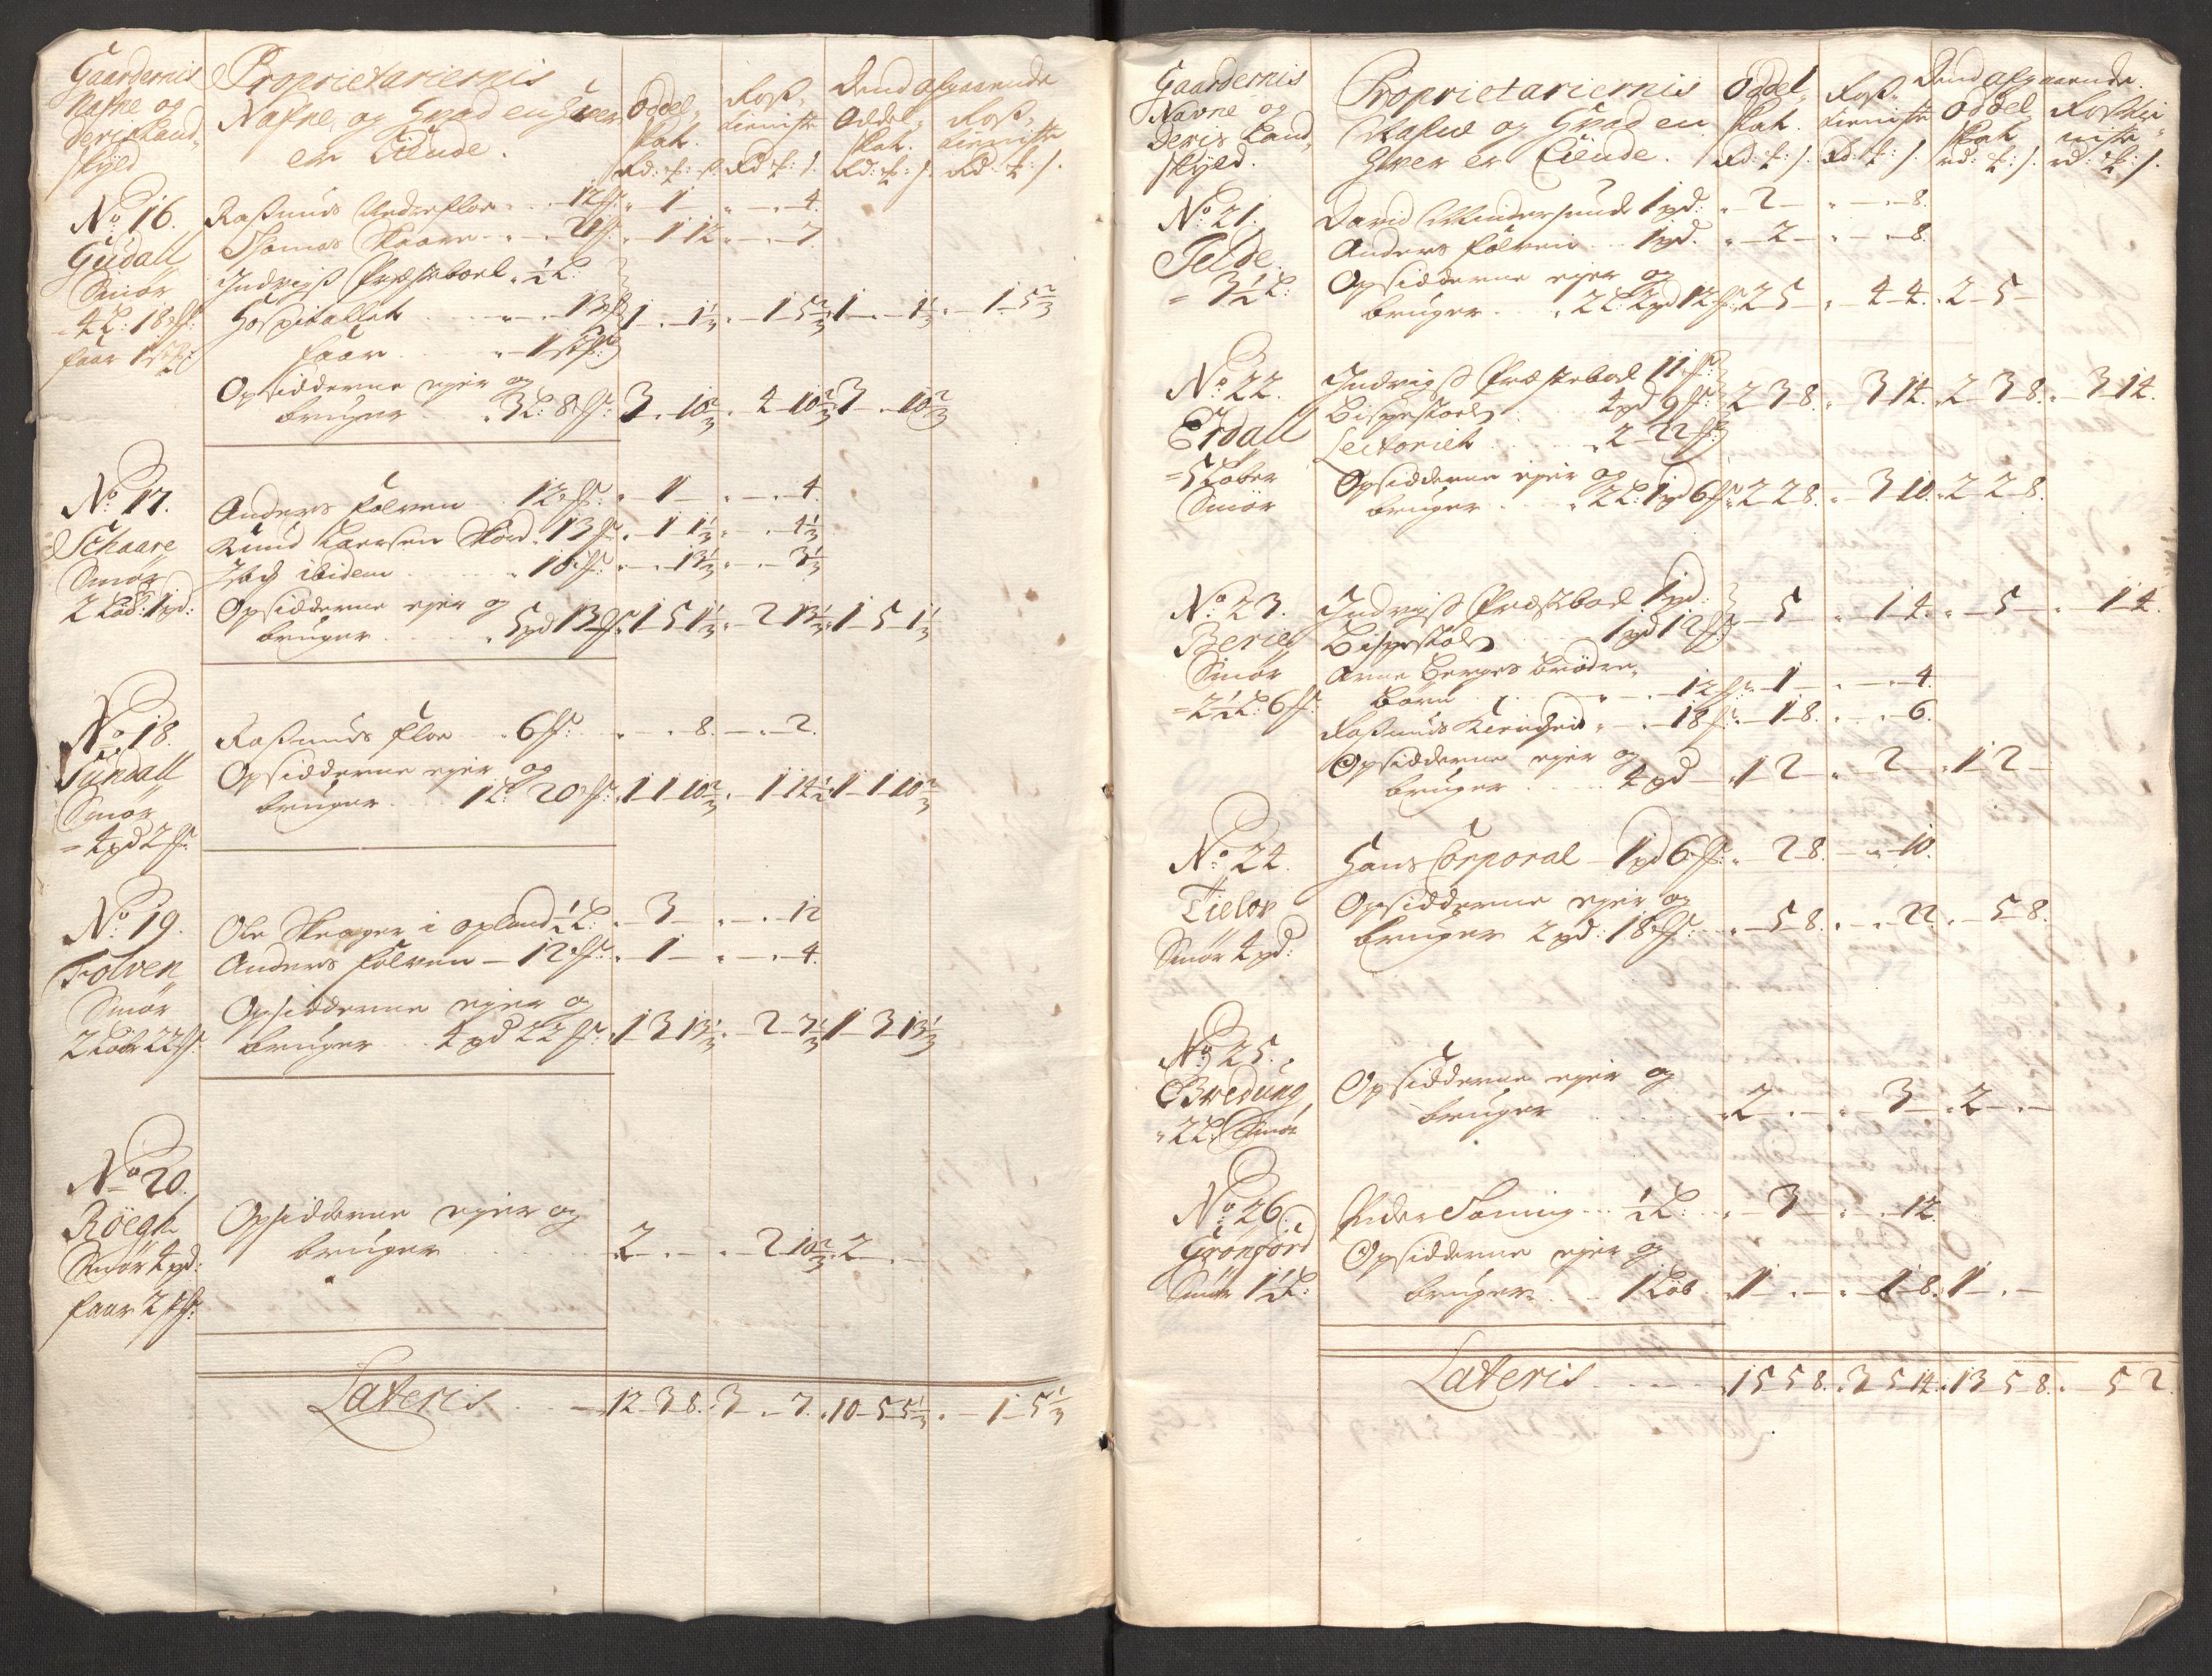 Gaardernis
Nafne og
deris Land,
skyld
Proprietariernis
Nafne, og Hvad en Hver
er Eiende.
Oddel,
skat.
Rd: #: s.
Ross,
tieniste
Rd #: s.
Dend afgaaende
Oddel,
skat.
Rd: #: s.
Ross,
tieniste
Rd #: s.
No 16.
Gudall
Smør
4 L: 18 #:
Rasmus Nedrefloe 12 #: 1 4.
Thomas Skaare 21 #: 1 12 7.
Indvigs Præsteboel ½ L:
Hospitallet 13 # 1 1⅓ 1 5⅔ 1 1⅓ 1 5⅔
faar 1
Opsidderne ejer og
bruger 3 L: 8 #: 3 10⅔ 4 10⅔ 3 10⅔
No 17.
Schaare
Smør
2 Løb: 1 pd:
Anders folven 12 #: 1 4.
Knud Larsen Skord 13 #: 1 1⅓ 4⅓
ibidem 10 #: 13⅓ 3⅓
Opsidderne ejer og
bruger 5 pd 13 #: 1 5 1⅓ 2 13⅓ 1 5 1⅓
No 18.
Sundall
Smør
4 pd 2 #:
Rasmus floe 6 #: 8. 2.
Opsidderne ejer og
bruger 1 L: 20 #: 1 1 10⅔ 1 14½ 1 1 10⅔
No 19.
Folven
Smør
2 Løb 22 #:
Ole Skrager i opland ½ L: 3 12
Anders folven 12 #: 1 4.
Opsidderne ejer og
bruger 4 pd 22 #: 1 3 13⅓ 2 7⅓ 1 3 13⅓
No 20.
Röegh
Smør 4 pd:
faar 2
Opsidderne ejer og
bruger 2 2 10⅔ 2
Lateris 12 3 8. 3 7. 10 5 5⅓ 1 5⅓
Gaardernis
Navne og
deris Land,
skyld.
Proprietariernis
Nafne og Hvad en
Hver er Eiende.
Oddel,
skat.
Rd: #: s.
Ross,
tieniste
Rd: #: s.
Dend afgaaende
Oddel,
skat
rd: #: s.
Rosstie,
niste
rd: #: s.
No 21.
Telde
3½ L:
David Mindresunde 1 pd: 2 8.
Anders folven 1 pd. 2 8.
Opsidderne ejer og
bruger 2 L: 2 pd 12 #: 2 5 4 4. 2 5
No 22.
Erdall
5 Løber
Smør
Indvigs Præstebol 11 #:
Bispestoel 4 pd 9 #: 2 3 8. 3 14. 2 3 8. 3 14.
Lectoriet 2 22 #:
Opsidderne ejer og
bruger 2 L: 1 pd 6 #: 2 2 8. 3 10. 2 2 8.
No 23.
Berig
Smør
2½ L: 6 #:
Indvigs Præstebol 1 pd:
Bispestoel 1 pd 12 #: 5 1 4. 5 1 4.
Arne Berges brödre,
børn 12 #: 1 4.
Rasmus 18 #: 1 8. 6.
Opsidderne ejer og
bruger 4 pd 1 2 2 1 2
No 24.
Tielov
Smør 4 pd:
Hans Corporal 1 pd 6 #: 2 8. 10.
Opsidderne ejer og
bruger 2 pd: 18 #: 5 8. 22. 5 8.
No 25.
Bredung
2 L: Smør
Opsidderne ejer og
bruger 2 3 2
No 26.
Gronfórd
Smør 1½ L:
Peder Soning ½ L: 3 12.
Opsidderne ejer og
bruger 1 Løb 1 1 8. 1
Lateris 15 5 8. 3 5 14. 13 5 8. 5 2.